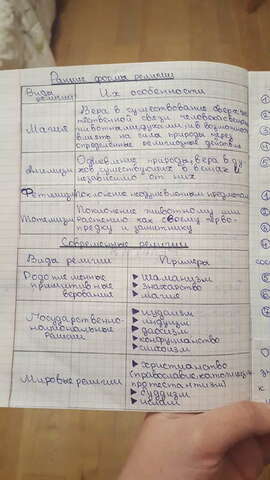 Ранние формы религии
Виды религии
Их особенности
Магия
Вера в существование сверхъес-
тественной связи человека с
животными, духами и в возможность
влиять на силы природы через
определённые религиозные действия
Анимизм
Одушевление природы, вера в ду-
хов существующих в вещах и
независимо от них
Фетишизм
поклонение неодушевлённым предметам
Тотемизм
Поклонение животному или
растению как своему перво-
предку и защитнику
Современные религии
Вида религии
Примеры
Родоплеменные
примитивные
верования
шаманизм
знахарство
магия
Государственно-
национальные
религии
иудаизм
индуизм
даосизм
конфуцианство
синтоизм
Мировые религии
христианство
(православие, католицизм
протестантизм)
буддизм
ислам